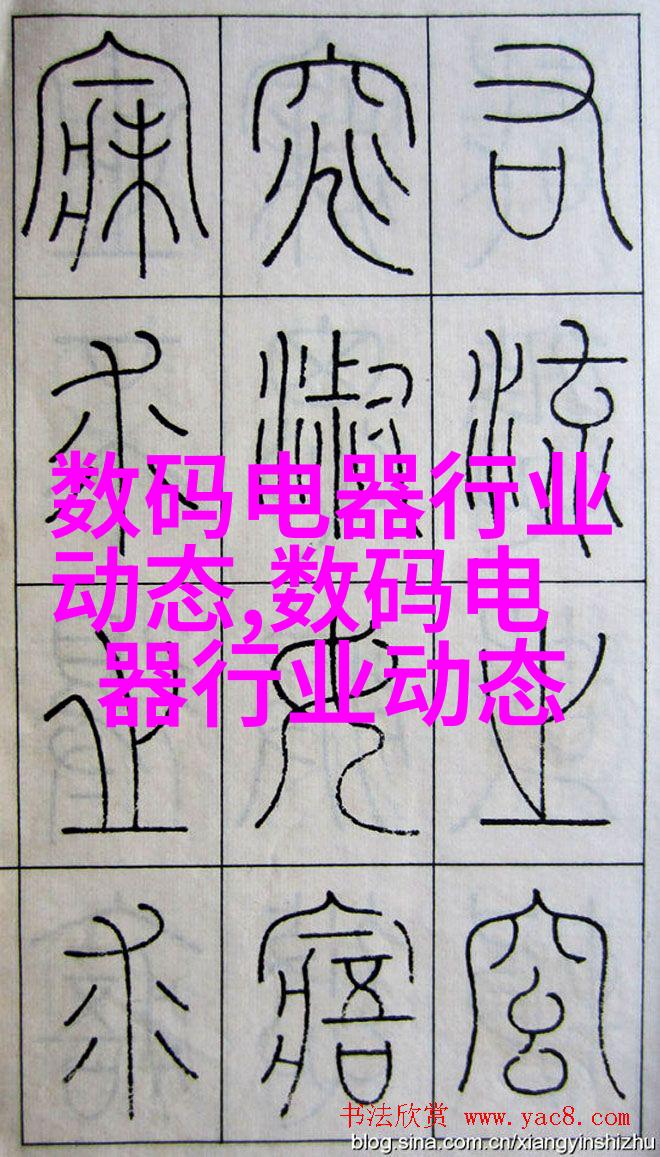 右流之窈
窕淑女寤
寐求之求
数码电器行业
动态,数码电
器行业动态
书法欣赏 www.yac8.com
blog.sina.com.cn/xiangyinshizhu